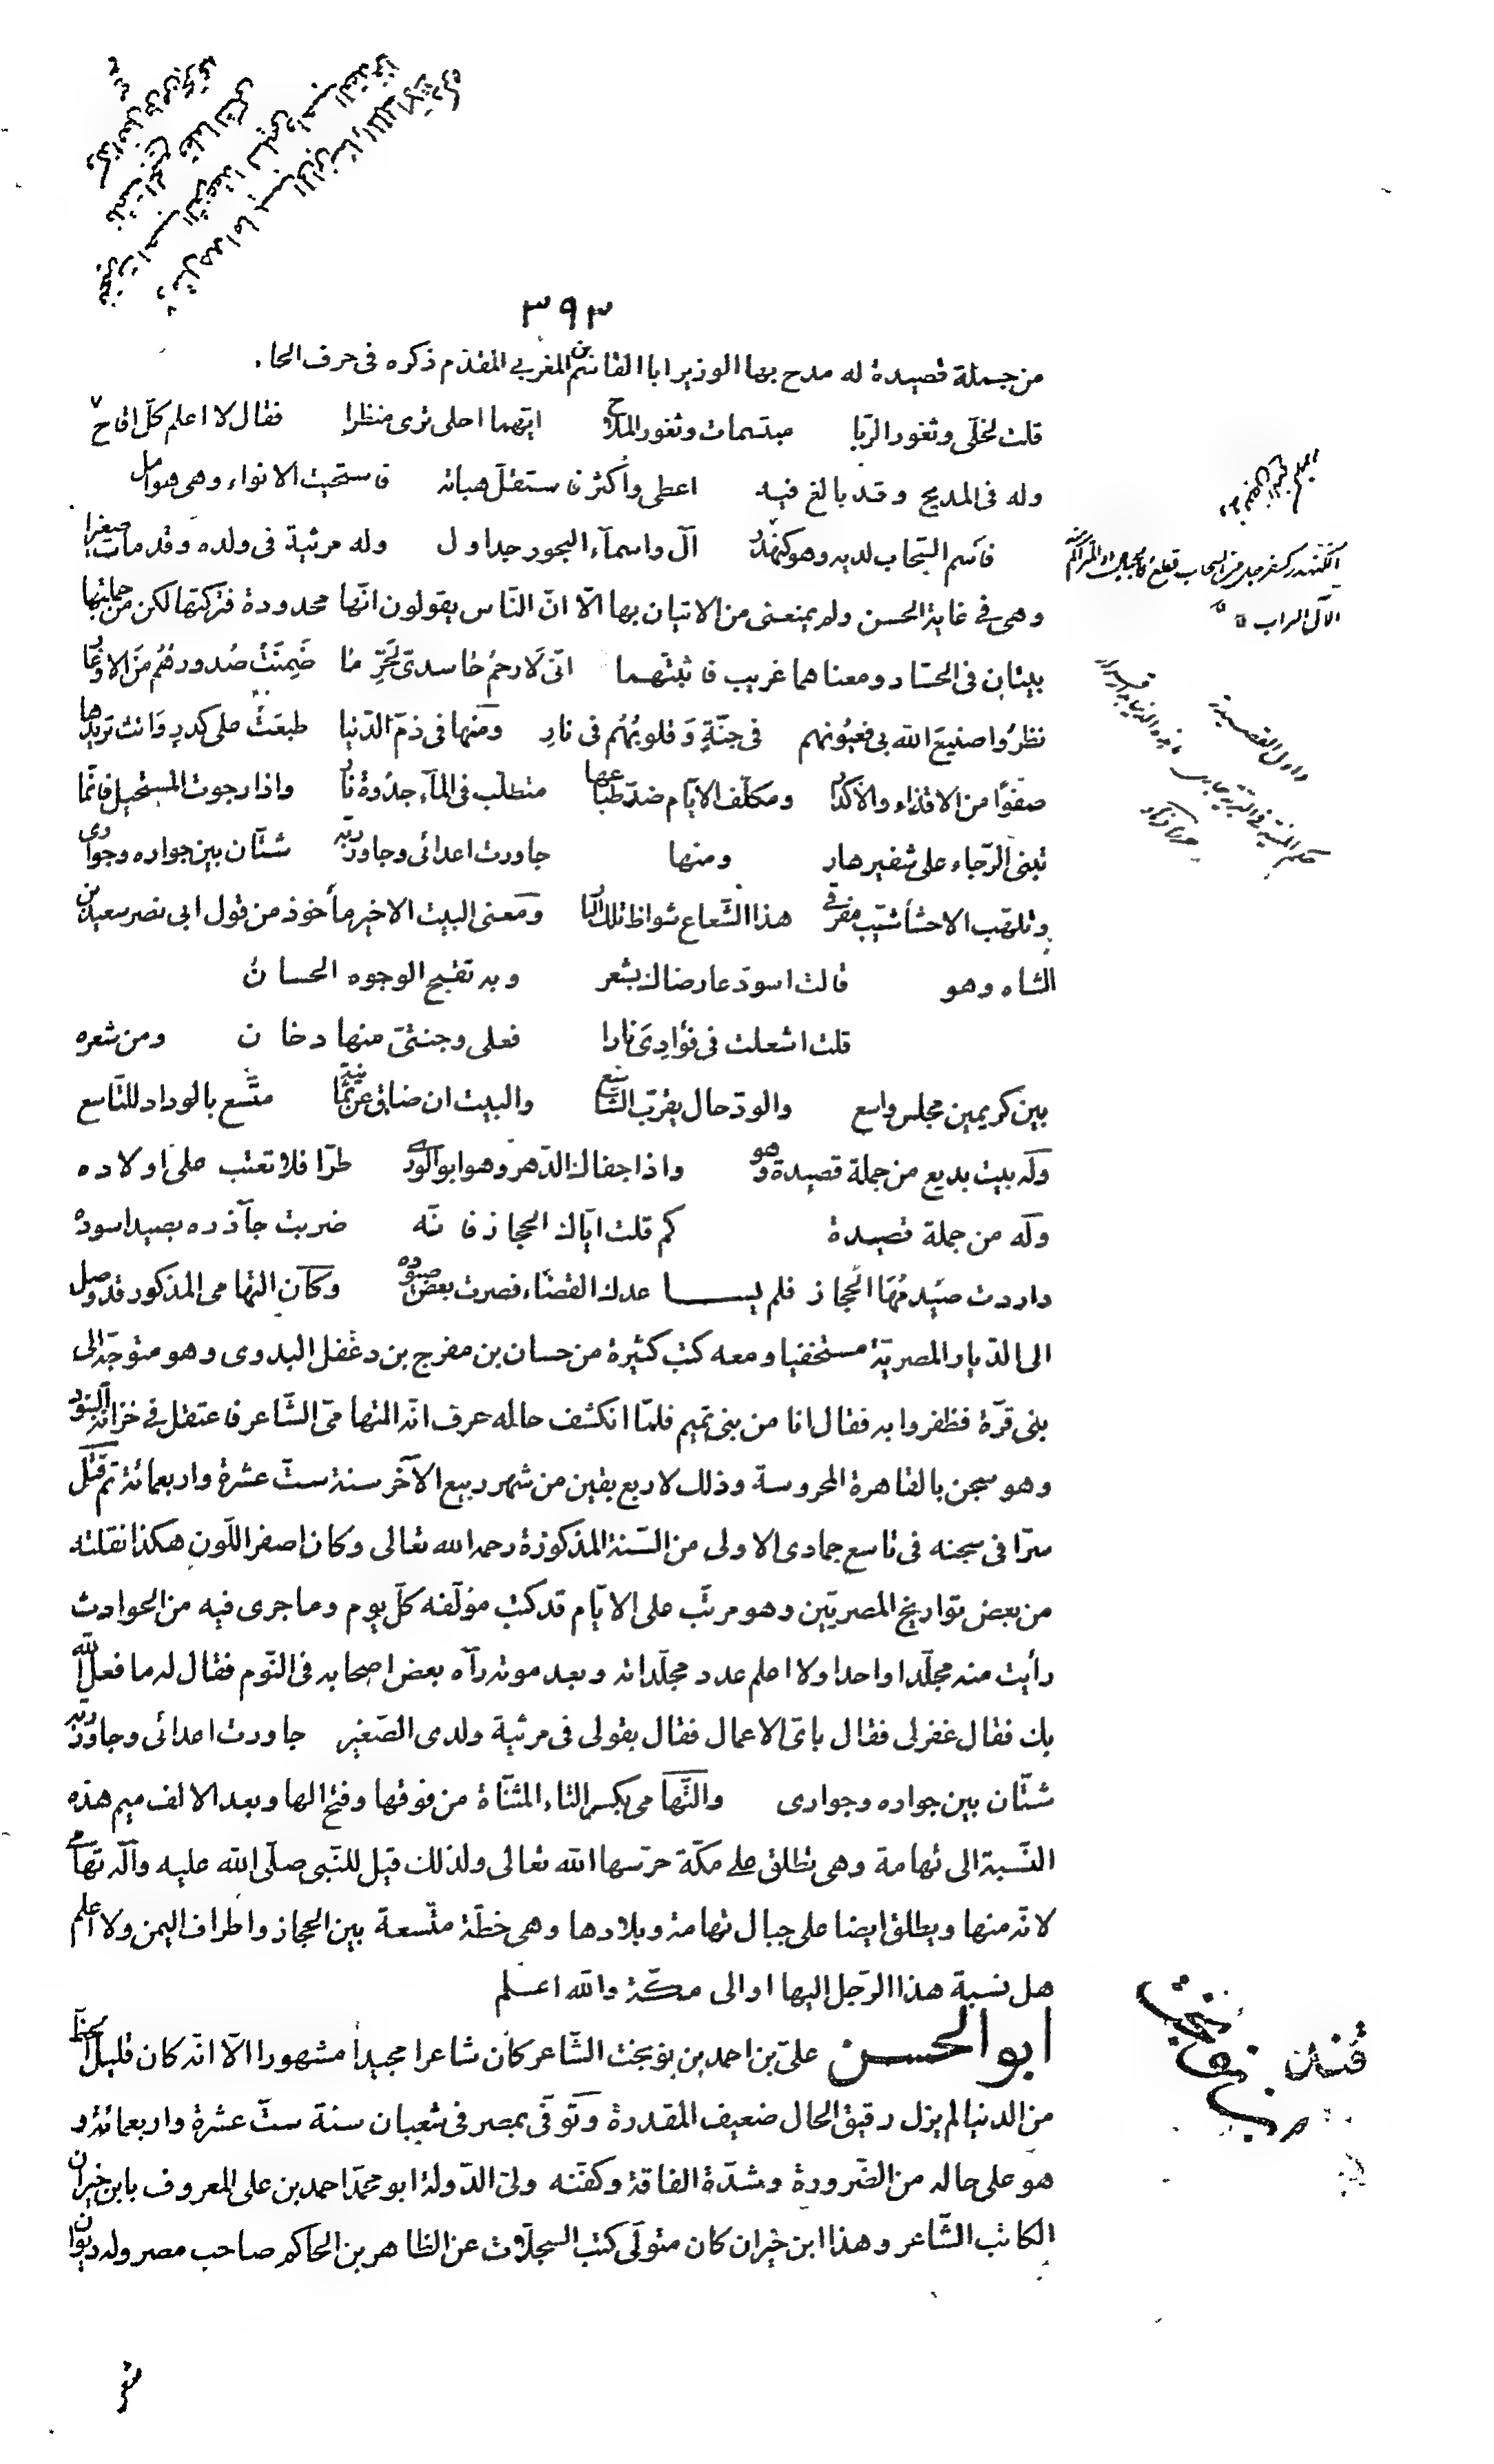 ٣٩٣
من جملة قصيدة له مدح بها الوزير ابا القاسم بن المغربي المقدّم ذكره في حرف الحاء
قلت لخلّى وثغور الرّبا مبتسمات وثغور الملاح ايّهما احلى ترى منظرا فقال لا اعلم كلّ اقاح
وله فى المديح وقد بالغ فيه اعطى واكثر فاستقلّ هباته فاستحيت الانواء وهى هوامل
فاسم السّحاب لديه وهو كنهور آل واسماء البحور جداول وله مرثية فى ولده وقد مات صغيرا
وهى في غاية الحسن ولم يمنعنى من الاتيان بها الّا انّ النّاس يقولون انّها محدودة فتركتها لكن من جملتها
بيتان فى الحسّاد ومعناهما غريب فاثبتّهما انّى لَارحمُ حاسدىّ لحَرِّ مَا ضَمِنَتْ صُدورهُم مَن الاوغار
نظرُوا صنيعَ الله بى فعيُونهم فى جنّةٍ وَقلوبُهُم فى نارِ ومنها فى ذمّ الدّنيا طبعَتْ على كدرٍ وَانت تريدها
صفوًا من الاقذاء والاكدار ومكلّف الايّام ضدّ طباعها متطلّب فى الماء جذوة نار واذا رجوت المستحيل فانّما
تبنى الرّجاء على شفير هار ومنها جاورت اعدائى وجاور ربّه شتّان بين جواره وجوارى
وتلهّب الاحشاء شيّب مفرقي هذا الشّعاع شواظ تلك النار ومعنى البيت الاخير مأخوذ من قول ابى نصر سعيد بن
الشاه وهو قالت اسودّ عارضاك بشعر وبه تقبح الوجوه الحسان
قلت اشعلت فى فؤادِىَ نارا فعلى وجنتىّ منها دخان ومن شعره
بين كريمين مجلس واسع والودّ حال يقرّب الشّاسع والبيت ان ضاق عن ثمانية متّسع بالوداد للتّاسع
وله بيت بديع من جملة قصيدة وهو واذا جفاك الدّهر وهو ابو الورى طرّا فلا تعتب على اولاده
وله من جملة قصيدة كم قلت ايّاك الحجاز فانّه ضربت جآذره بصيد اسوده
واردت صيد مَها الحجاز فلم يساعدك القضاء فصرت بعض صيوده وكان التهامى المذكور قد وصل
الى الدّيار المصريّة مستخفيا ومعه كتب كثيرة من حسان بن مفرج بن دغفل البدوى وهو متوجّه الى
بنى قرّة فظفروا به فقال انا من بنى تميم فلمّا انكشف حاله عرف انّه التهامىّ الشّاعر فاعتقل فى خزانة البنود
وهو سجن بالقاهرة المحروسة وذلك لاربع بقين من شهر ربيع الآخر سنة ستّ عشرة واربعمائة ثم قتل
سرّا فى سجنه فى تاسع جمادى الاولى من السّنة المذكورة رحمه الله تعالى وكان اصفر اللّون هكذا نقلته
من بعض تواريخ المصريّين وهو مرتّب على الايّام قد كتب مؤلّفه كلّ يوم وما جرى فيه من الحوادث
رأيت منه مجلّدا واحدا ولا اعلم عدد مجلّداته وبعد موته رآه بعض اصحابه فى النّوم فقال له ما فعل الله
بك فقال غفر لى فقال باىّ الاعمال فقال بقولى فى مرثية ولدى الصّغير جاورت اعدائى وجاور ربّه
شتّان بين جواره وجوارى والتّهامى بكسر التاء المثنّاة من فوقها وفتح الها وبعد الالف ميم هذه
النّسبة الى تهامة وهى تطلق على مكّة حرّسها الله تعالى ولذلك قيل للنّبى صلّى الله عليه وآله تهامى
لانّه منها ويطلق ايضا على جبال تهامة وبلادها وهى خطّة متّسعة بين الحجاز واطراف اليمن ولا اعلم
هل نسبة هذا الرّجل اليها او الى مكّة والله اعلم
ابو الحسن علىّ بن احمد بن نوبخت الشّاعر كان شاعرا مجيدا مشهورا الّا انّه كان قليل الحظّ
من الدنيا لم يزل رقيق الحال ضعيف المقدرة وتوفّى بمصر فى شعبان سنة ستّ عشرة واربعمائة و
هو على حاله من الضّرورة وشدّة الفاقة وكفّنه ولىّ الدّولة ابو محمّد احمد بن على المعروف بابن خيران
الكاتب الشّاعر وهذا ابن خيران كان متولّى كتب السجلّات عن الظاهر بن الحاكم صاحب مصر وله ديوان
الآل السراب
واول القصيدة
حكم المنيّة فى البريّة جار
ما هذه الدنيا بدار قرار
بن نوبخت